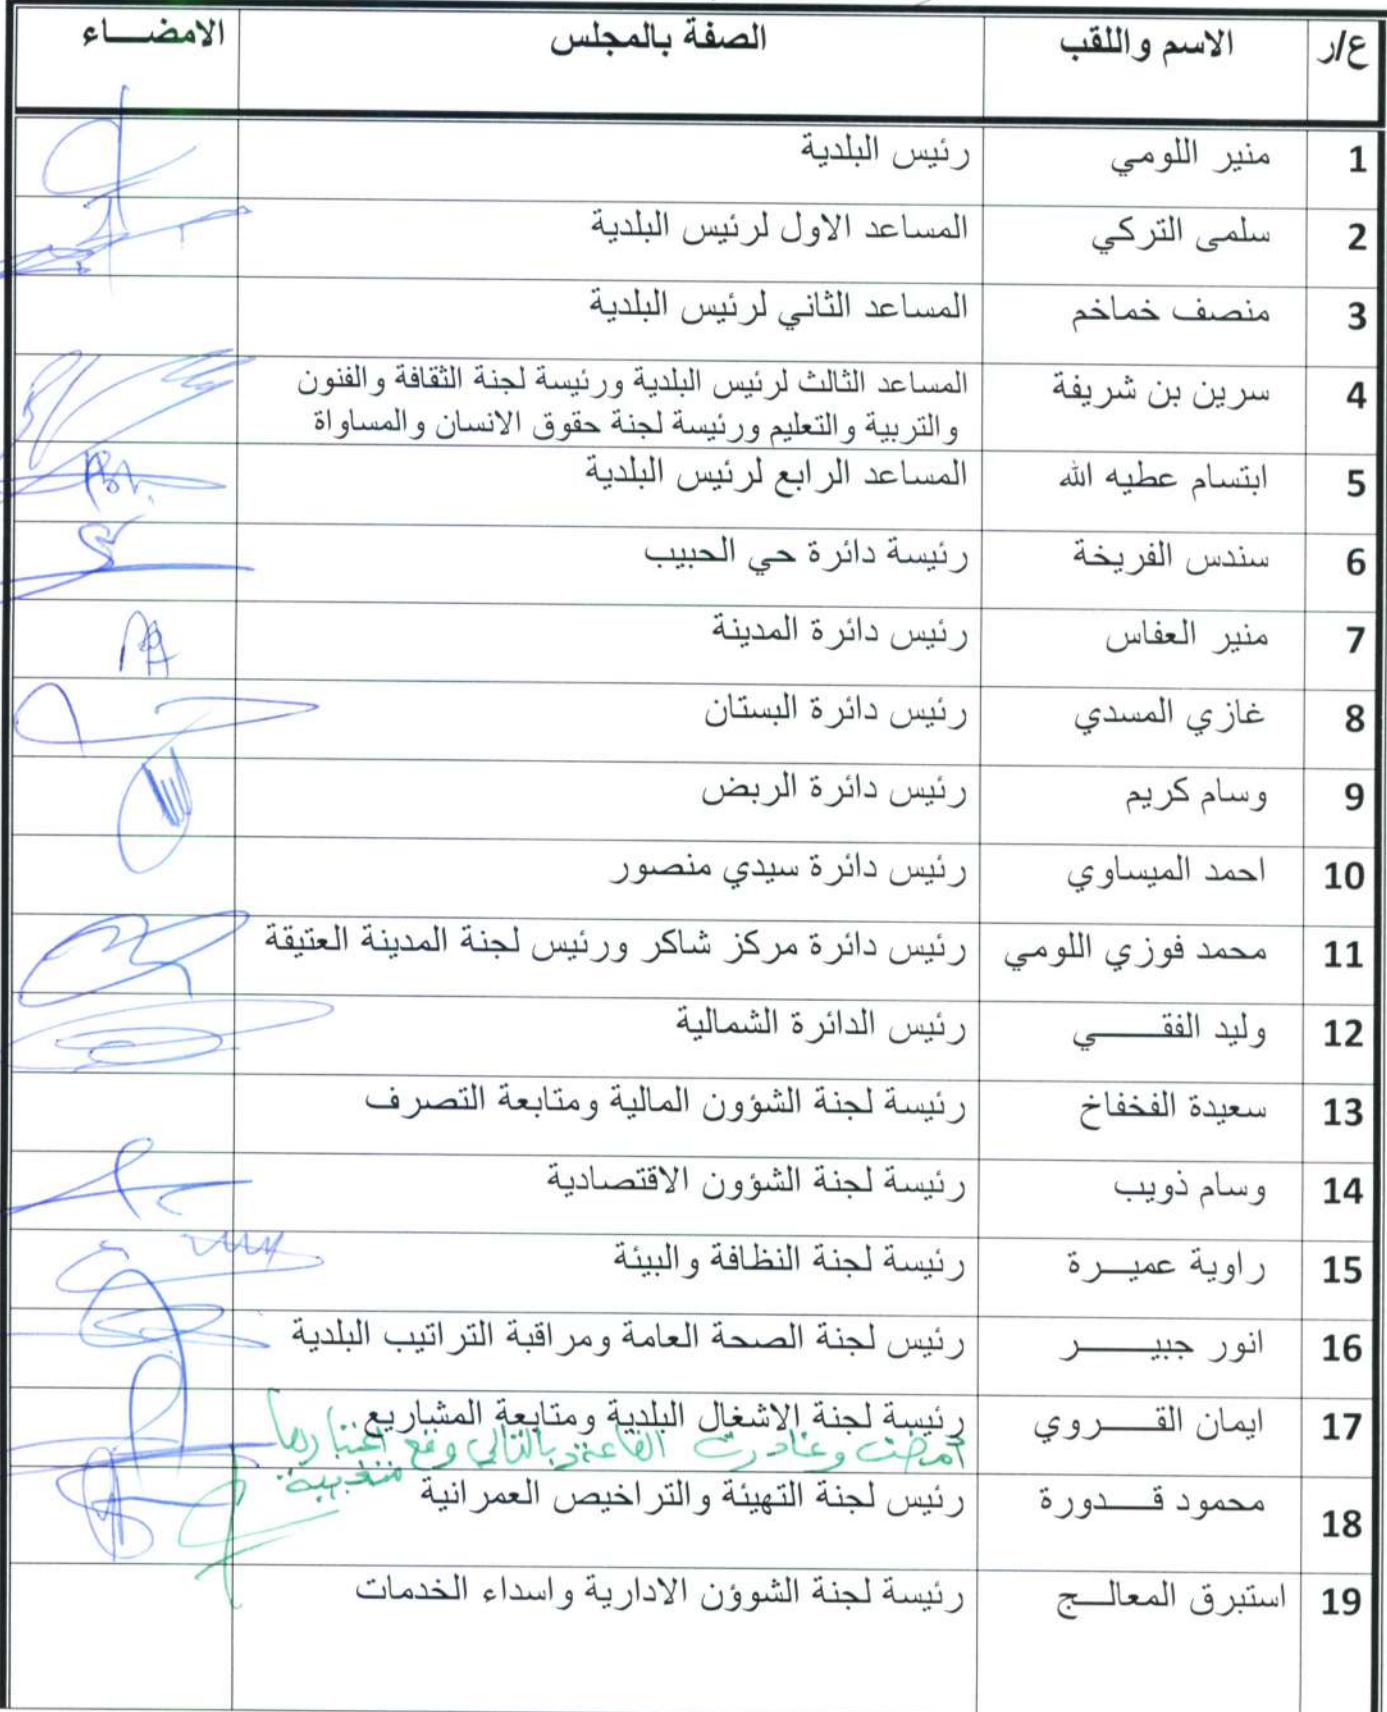 ع/ر الاسم واللقب الصفة بالمجلس الامضـــاء
1 منير اللومي رئيس البلدية
2 سلمى التركي المساعد الاول لرئيس البلدية
3 منصف خماخم المساعد الثاني لرئيس البلدية
4 سرين بن شريفة المساعد الثالث لرئيس البلدية ورئيسة لجنة الثقافة والفنون
والتربية والتعليم ورئيسة لجنة حقوق الانسان والمساواة
5 ابتسام عطيه الله المساعد الرابع لرئيس البلدية
6 سندس الفريخة رئيسة دائرة حي الحبيب
7 منير العفاس رئيس دائرة المدينة
8 غازي المسدي رئيس دائرة البستان
9 وسام كريم رئيس دائرة الربض
10 احمد الميساوي رئيس دائرة سيدي منصور
11 محمد فوزي اللومي رئيس دائرة مركز شاكر ورئيس لجنة المدينة العتيقة
12 وليد الفقـــــي رئيس الدائرة الشمالية
13 سعيدة الفخفاخ رئيسة لجنة الشؤون المالية ومتابعة التصرف
14 وسام ذويب رئيسة لجنة الشؤون الاقتصادية
15 راوية عميـــرة رئيسة لجنة النظافة والبيئة
16 انور جبيـــــر رئيس لجنة الصحة العامة ومراقبة التراتيب البلدية
17 ايمان القـــروي رئيسة لجنة الاشغال البلدية ومتابعة المشاريع
أمضت وغادرت القاعة وبالتالي وقع اعتبارها
متغيبة
18 محمود قـــدورة رئيس لجنة التهيئة والتراخيص العمرانية
19 استبرق المعالــج رئيسة لجنة الشوؤن الادارية واسداء الخدمات